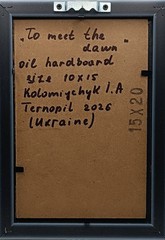 "To meet the
dawn"
oil hardboard
size 10x15
Kolomiychyk I.A
Ternopil 2026
(Ukraine)
15X20